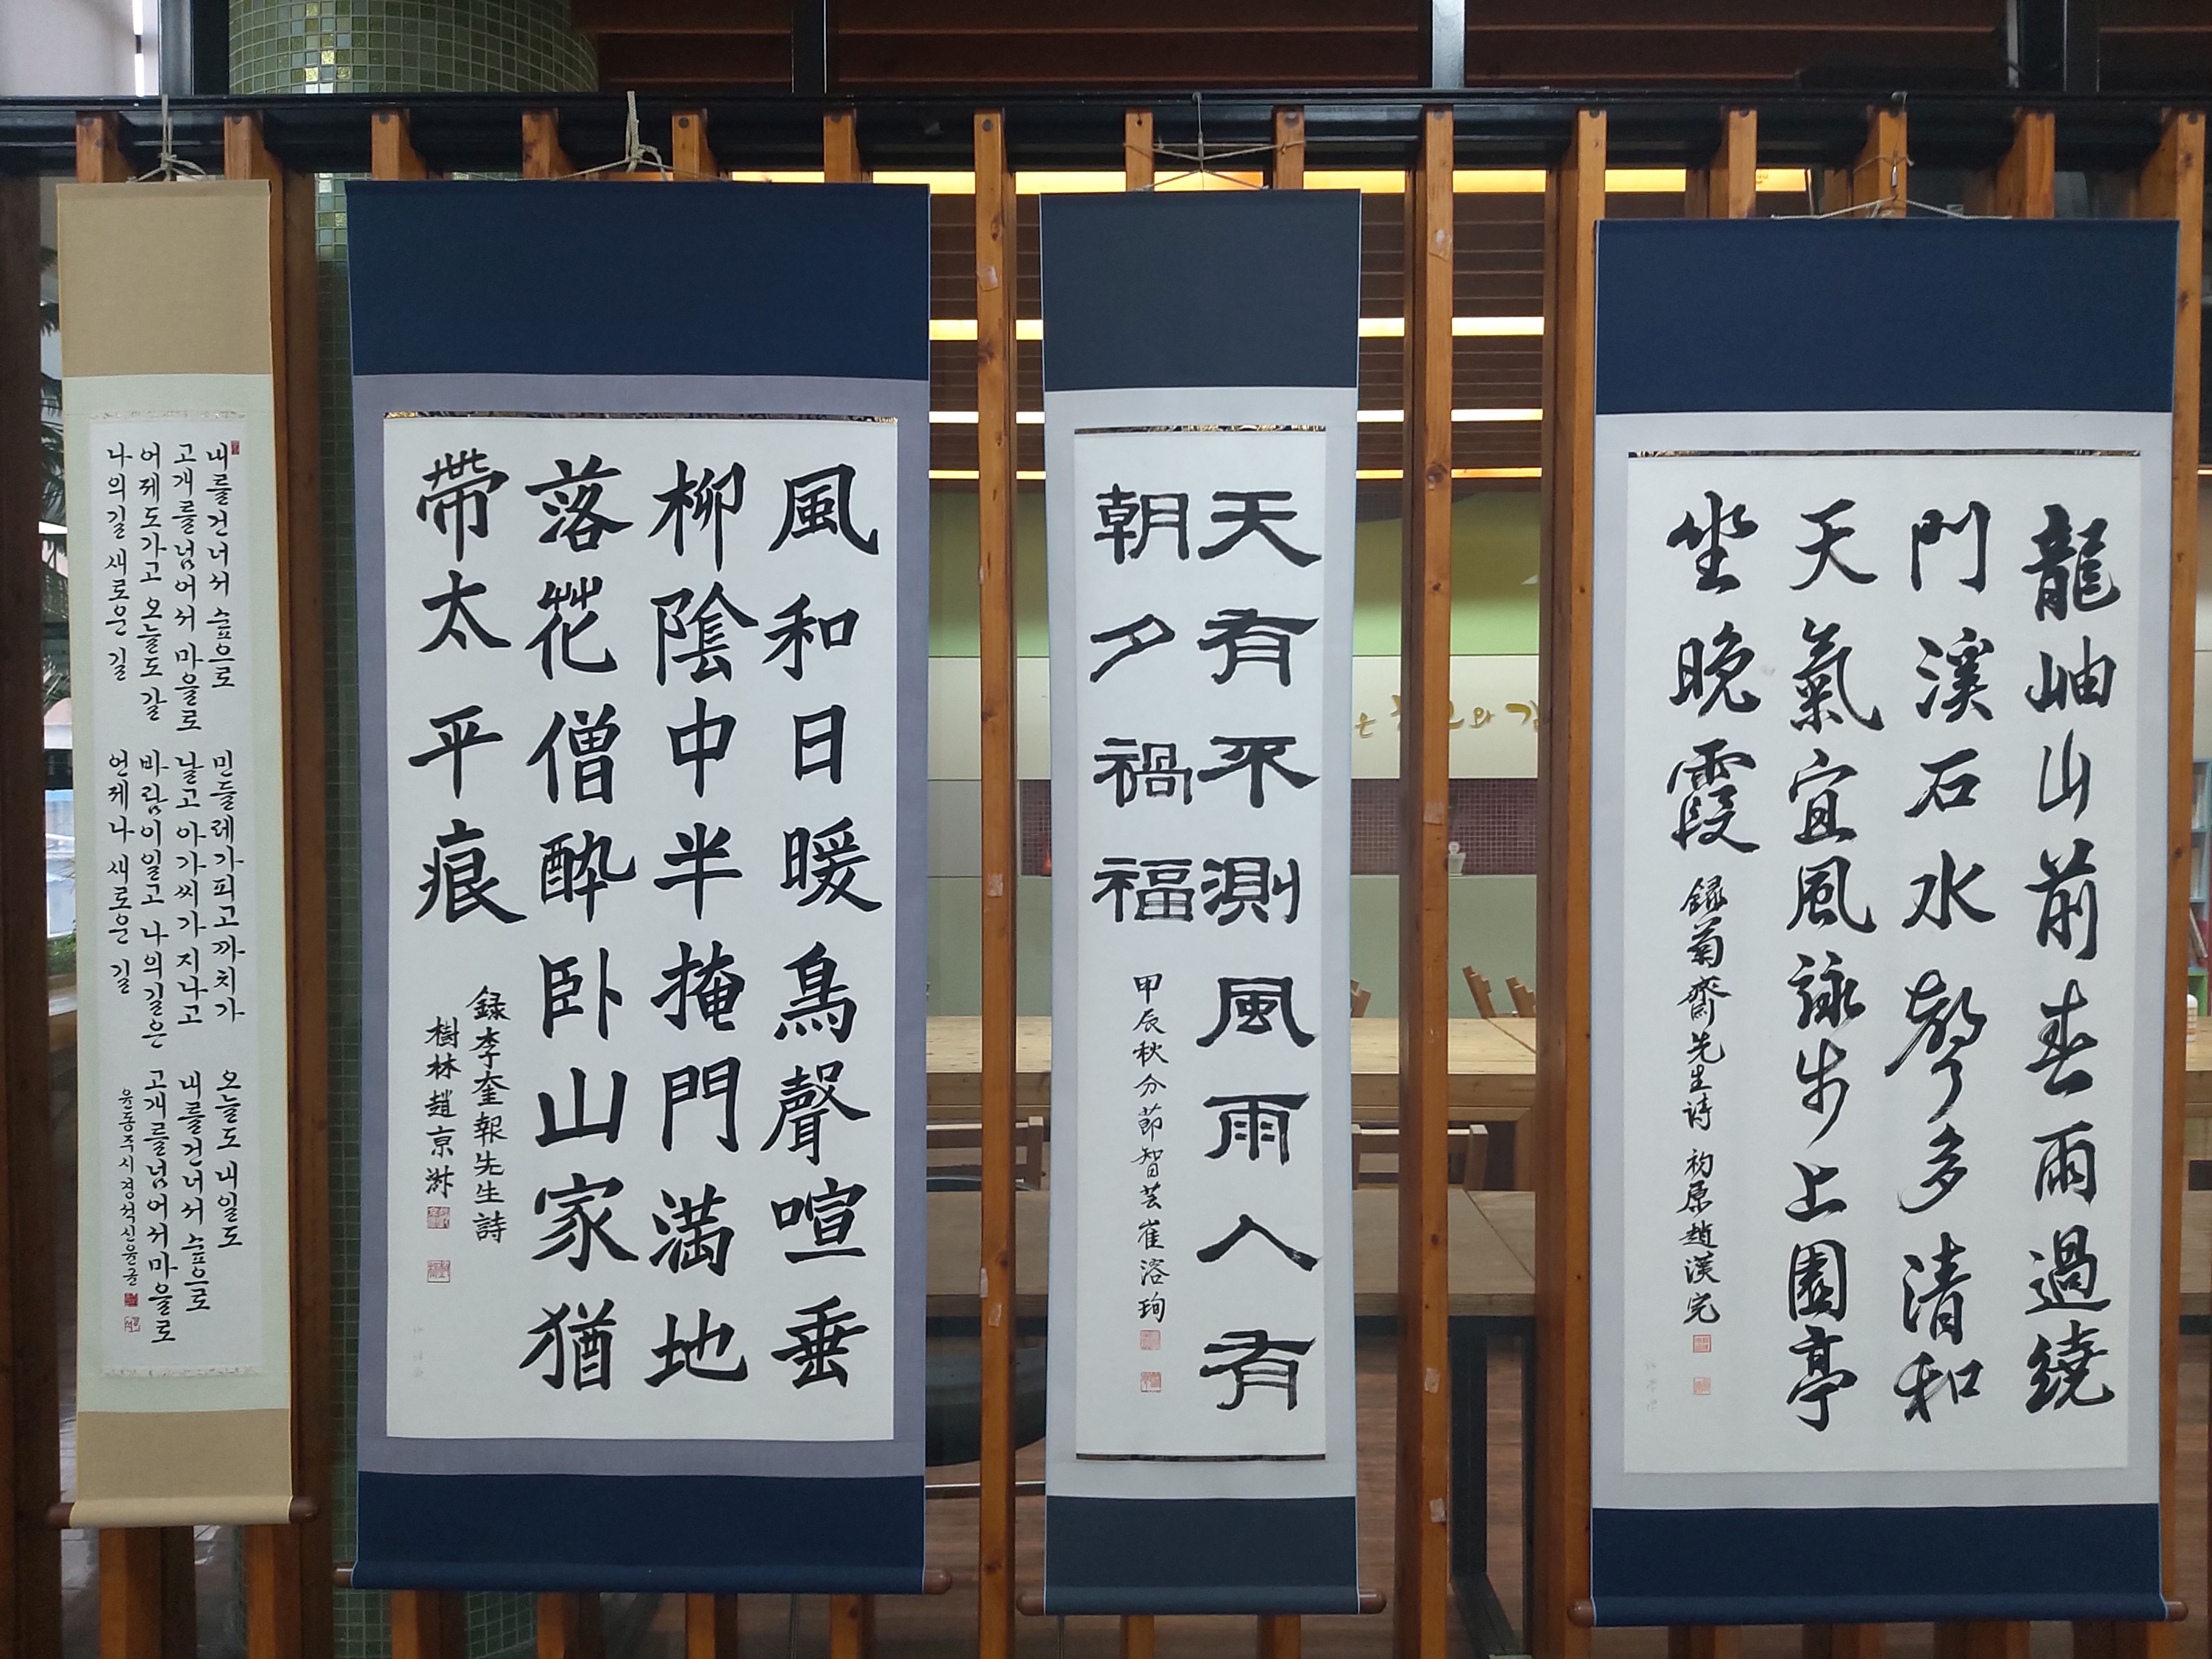 내를건너서 숲으로
고개를넘어서 마을로
어제도가고 오늘도갈
나의길 새로운길
민들레가피고까치가
날고 아가씨가지나고
바람이일고 나의길은
언제나 새로운 길
오늘도 내일도
내를건너서 숲으로
고개를넘어서마을로
윤동주시 경석신윤글
風和日暖鳥聲喧垂
柳陰中半掩門滿地
落花僧醉臥山家猶
帶太平痕
錄李奎報先生詩
樹林趙京
天有不測風雨人有
朝夕禍福
甲辰秋分節智芸崔溶珣
龍岫山前春雨過繞
門溪石水聲多淸和
天氣宜風詠步上園亭
坐晚霞
錄菊齋先生詩 初原趙漢完